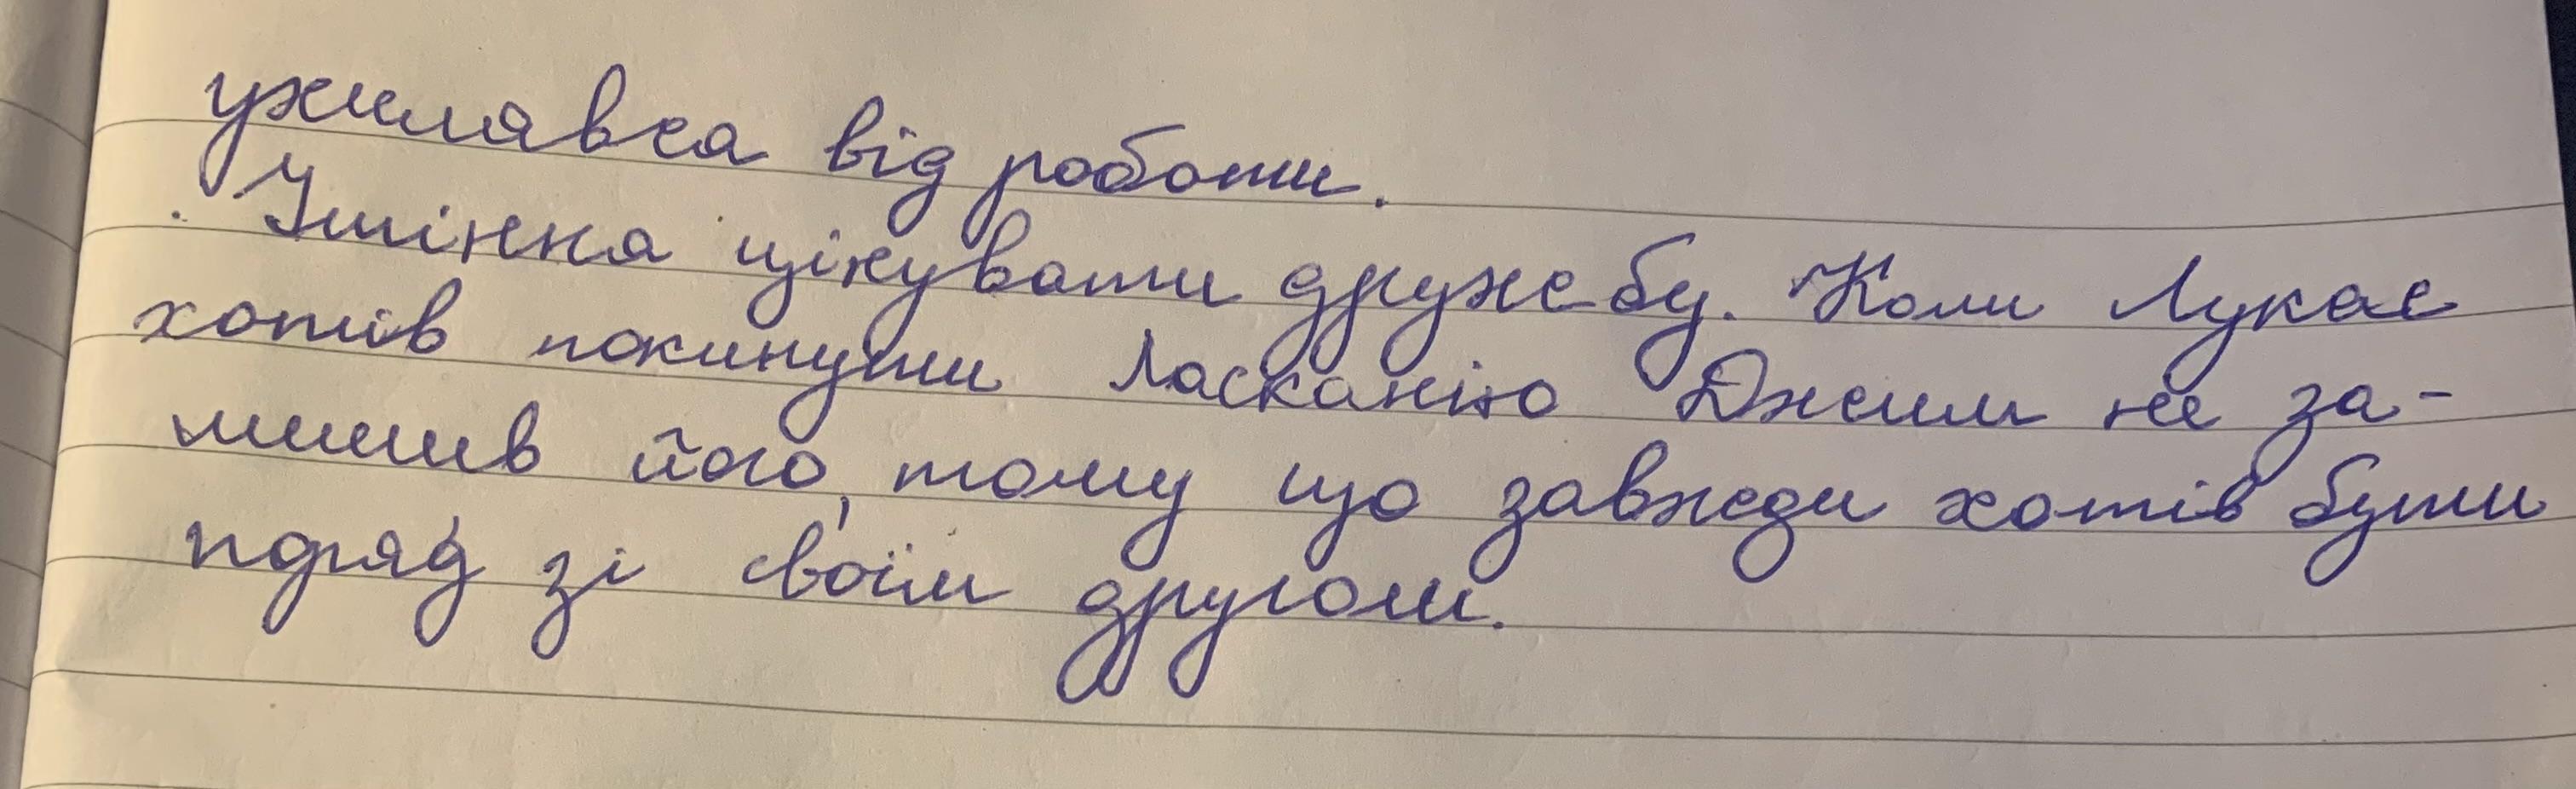 ухилявся від роботи.
Уміння цінувати дружбу. Коли Лукас
хотів покинути Ласканію Джим не за-
лишив його, тому що завжди хотів бути
поряд зі своїм другом.